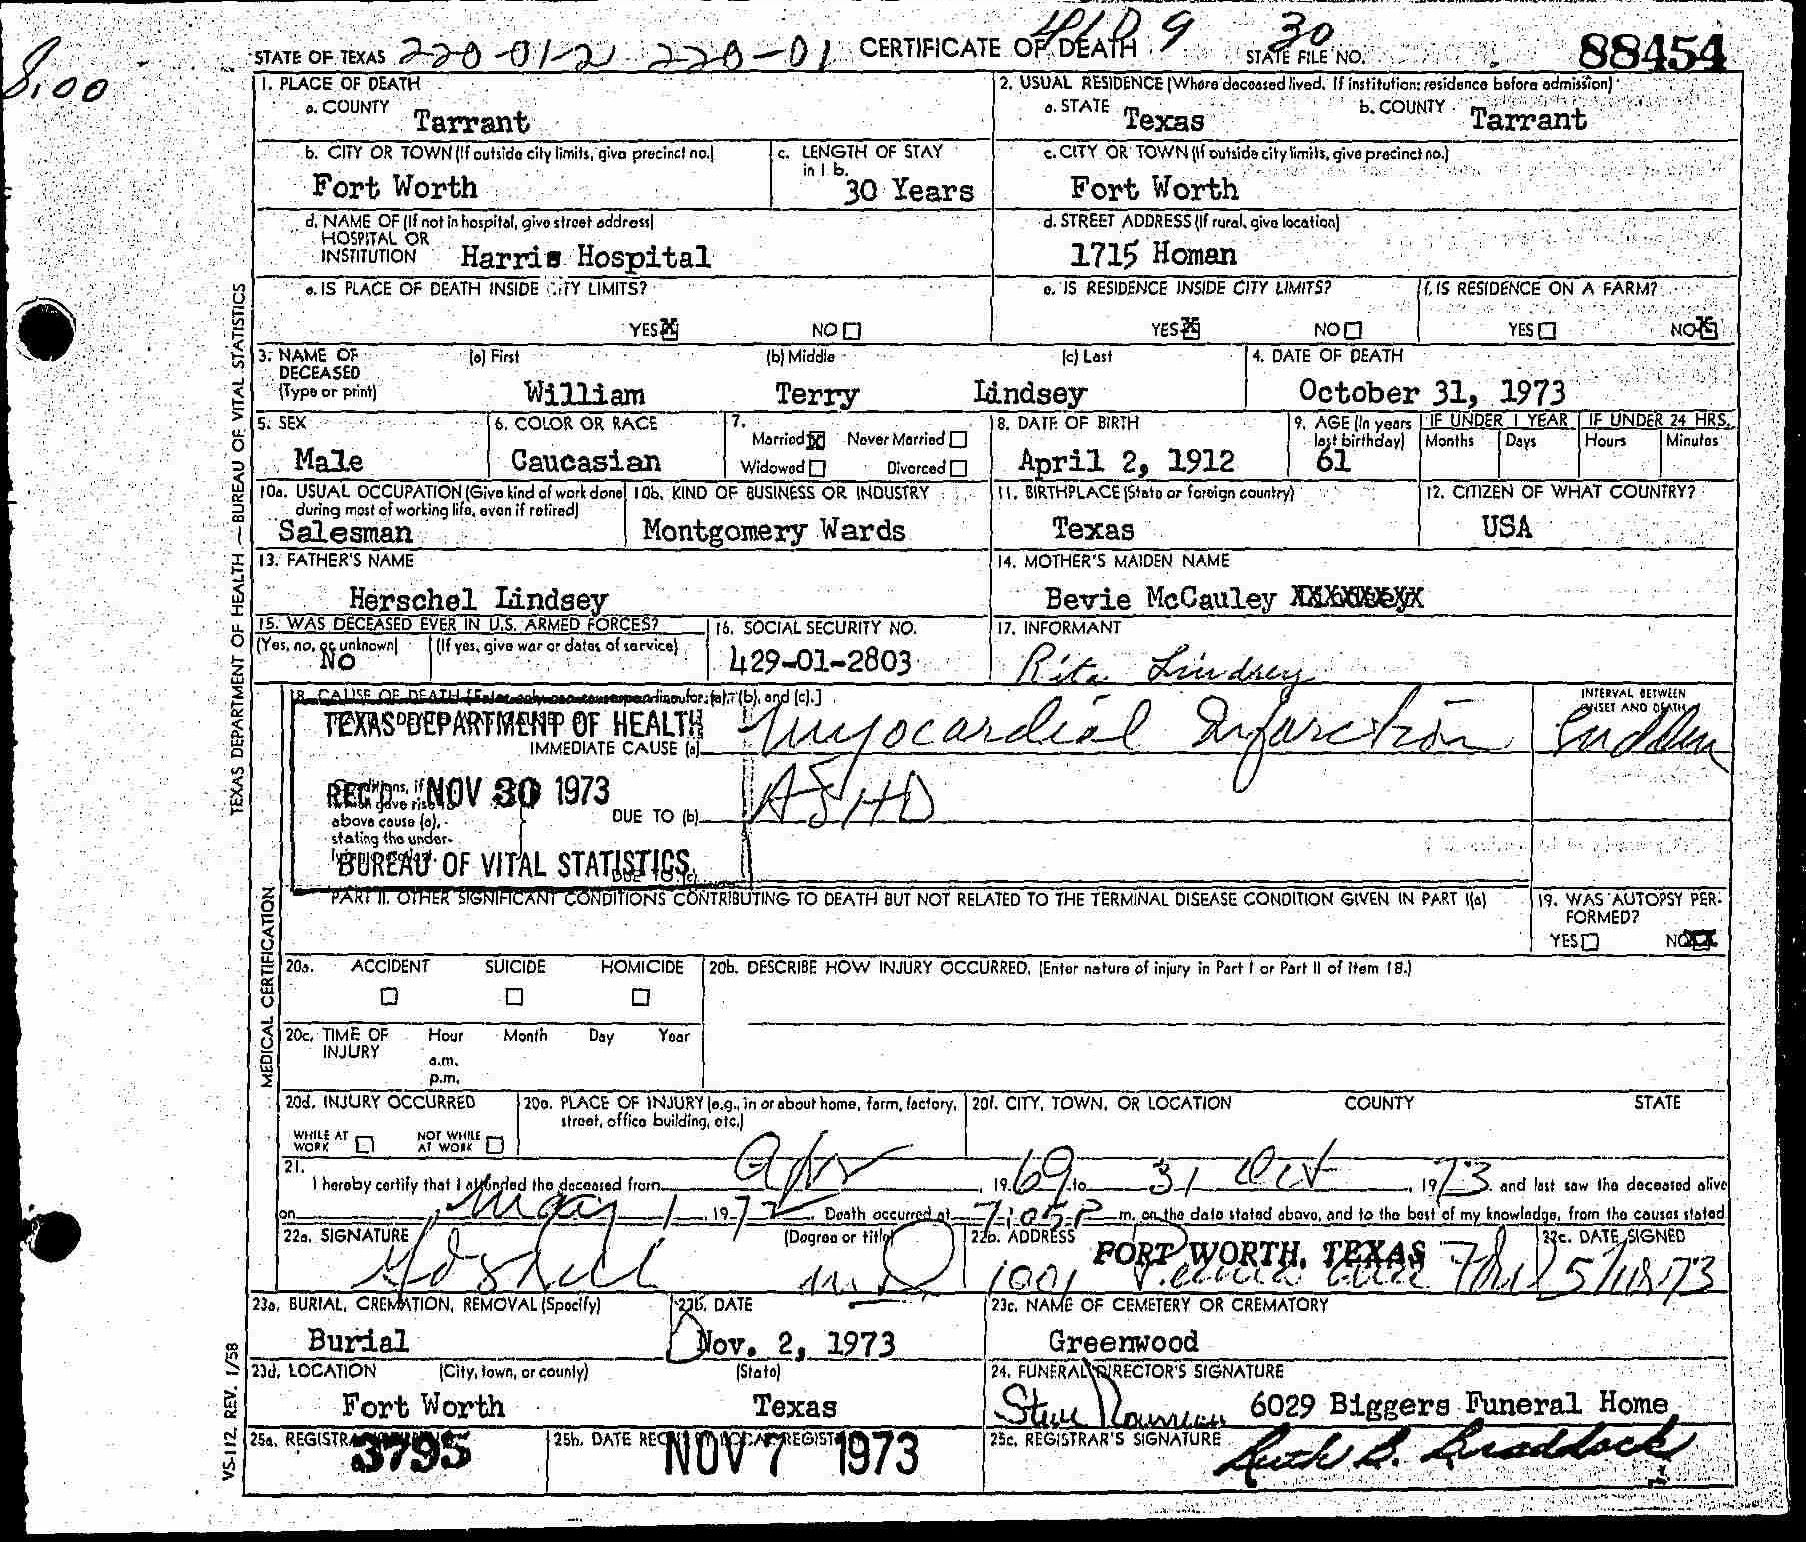 8.00
STATE OF TEXAS 220-01-2 220-01 CERTIFICATE OF DEATH 9 30 STATE FILE NO. 88454
1. PLACE OF DEATH
a. COUNTY Tarrant
2. USUAL RESIDENCE (Where deceased lived. If institution: residence before admission)
a. STATE Texas b. COUNTY Tarrant
b. CITY OR TOWN (If outside city limits, give precinct no.)
Fort Worth
c. LENGTH OF STAY in 1 b.
30 Years
c. CITY OR TOWN (If outside city limits, give precinct no.)
Fort Worth
d. NAME OF (If not in hospital, give street address)
HOSPITAL OR
INSTITUTION Harris Hospital
d. STREET ADDRESS (If rural, give location)
1715 Homan
e. IS PLACE OF DEATH INSIDE CITY LIMITS?
YES X NO
e. IS RESIDENCE INSIDE CITY LIMITS?
YES X NO
f. IS RESIDENCE ON A FARM?
YES NO X
3. NAME OF DECEASED (Type or print)
(a) First (b) Middle (c) Last
William Terry Lindsey
4. DATE OF DEATH
October 31, 1973
5. SEX
Male
6. COLOR OR RACE
Caucasian
7. Married X Never Married
Widowed Divorced
8. DATE OF BIRTH
April 2, 1912
9. AGE (In years last birthday)
61
IF UNDER 1 YEAR
Months Days
IF UNDER 24 HRS.
Hours Minutes
10a. USUAL OCCUPATION (Give kind of work done during most of working life, even if retired)
Salesman
10b. KIND OF BUSINESS OR INDUSTRY
Montgomery Wards
11. BIRTHPLACE (State or foreign country)
Texas
12. CITIZEN OF WHAT COUNTRY?
USA
13. FATHER'S NAME
Herschel Lindsey
14. MOTHER'S MAIDEN NAME
Bevie McCauley
15. WAS DECEASED EVER IN U.S. ARMED FORCES?
(Yes, no, or unknown) (If yes, give war or dates of service)
No
16. SOCIAL SECURITY NO.
429-01-2803
17. INFORMANT
Rita Lindsey
18. CAUSE OF DEATH [Enter only one cause per line for (a), (b), and (c).]
INTERVAL BETWEEN ONSET AND DEATH
TEXAS DEPARTMENT OF HEALTH
IMMEDIATE CAUSE (a) Myocardial Infarction Sudden
REC'D NOV 30 1973
Conditions, if
which gave rise to
above cause (a),
stating the under-
DUE TO (b) ASHD
BUREAU OF VITAL STATISTICS
DUE TO (c)
PART II. OTHER SIGNIFICANT CONDITIONS CONTRIBUTING TO DEATH BUT NOT RELATED TO THE TERMINAL DISEASE CONDITION GIVEN IN PART I(a)
19. WAS AUTOPSY PERFORMED?
YES NO
20a. ACCIDENT SUICIDE HOMICIDE
20b. DESCRIBE HOW INJURY OCCURRED. (Enter nature of injury in Part I or Part II of Item 18.)
20c. TIME OF INJURY Hour Month Day Year
a.m.
p.m.
20d. INJURY OCCURRED
WHILE AT WORK NOT WHILE AT WORK
20e. PLACE OF INJURY (e.g., in or about home, farm, factory, street, office building, etc.)
20f. CITY, TOWN, OR LOCATION COUNTY STATE
21. I hereby certify that I attended the deceased from Apr 1969, to 31 Oct, 1973 and last saw the deceased alive
on May 1, 1972. Death occurred at 7:05 P m. on the date stated above, and to the best of my knowledge, from the causes stated
22a. SIGNATURE (Degree or title)
MD
22b. ADDRESS
FORT WORTH, TEXAS
1001
22c. DATE SIGNED
23a. BURIAL, CREMATION, REMOVAL (Specify)
Burial
23b. DATE
Nov. 2, 1973
23c. NAME OF CEMETERY OR CREMATORY
Greenwood
23d. LOCATION (City, town, or county) (State)
Fort Worth Texas
24. FUNERAL DIRECTOR'S SIGNATURE
Steve 6029 Biggers Funeral Home
25a. REGISTRAR'S
3795
25b. DATE REC'D BY LOCAL REGISTRAR
NOV 7 1973
25c. REGISTRAR'S SIGNATURE
Ruth B. Braddock
TEXAS DEPARTMENT OF HEALTH — BUREAU OF VITAL STATISTICS
MEDICAL CERTIFICATION
VS-112, REV. 1/58